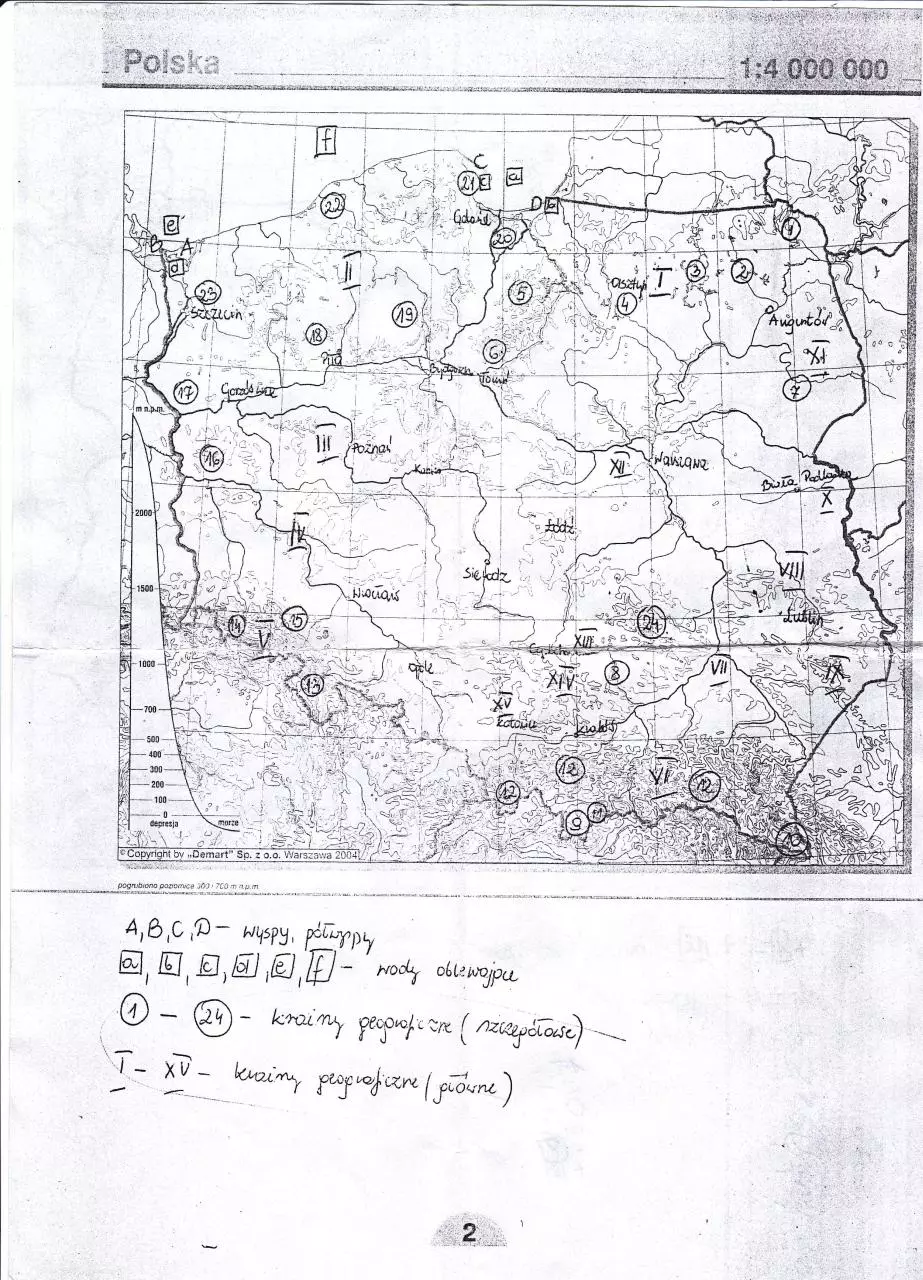 Polska 1:4 000 000
f
C
21 c a
22 D b
Gdańsk
1
e
20
B A
II
d
3 2
Olsztyn I
23 5 4
Szczecin
19 Augustów
18
Piła 6 XI
Bydgoszcz Toruń
17 7
m n.p.m.
III
Poznań
16 XII Warszawa
Konin
Biała Podlaska
X
2000
IV Łódź
VIII
Sieradz
1500
Wrocław
Lublin
14 15 24
V
XIII
1000 Opole XIV 8 VII IX
13
XV
700
Katowice Kraków
500
400 12 VI
300 12 12
200
100 11
0 9 10
depresja morze
© Copyright by „Demart" Sp. z o.o. Warszawa 2004
pogrubiono poziomice 300 i 700 m n.p.m.
A, B, C, D – wyspy, półwyspy
a, b, c, d, e, f – wody oblewające
1 – 24 – krainy geograficzne (szczegółowe)
I – XV – krainy geograficzne (główne)
2